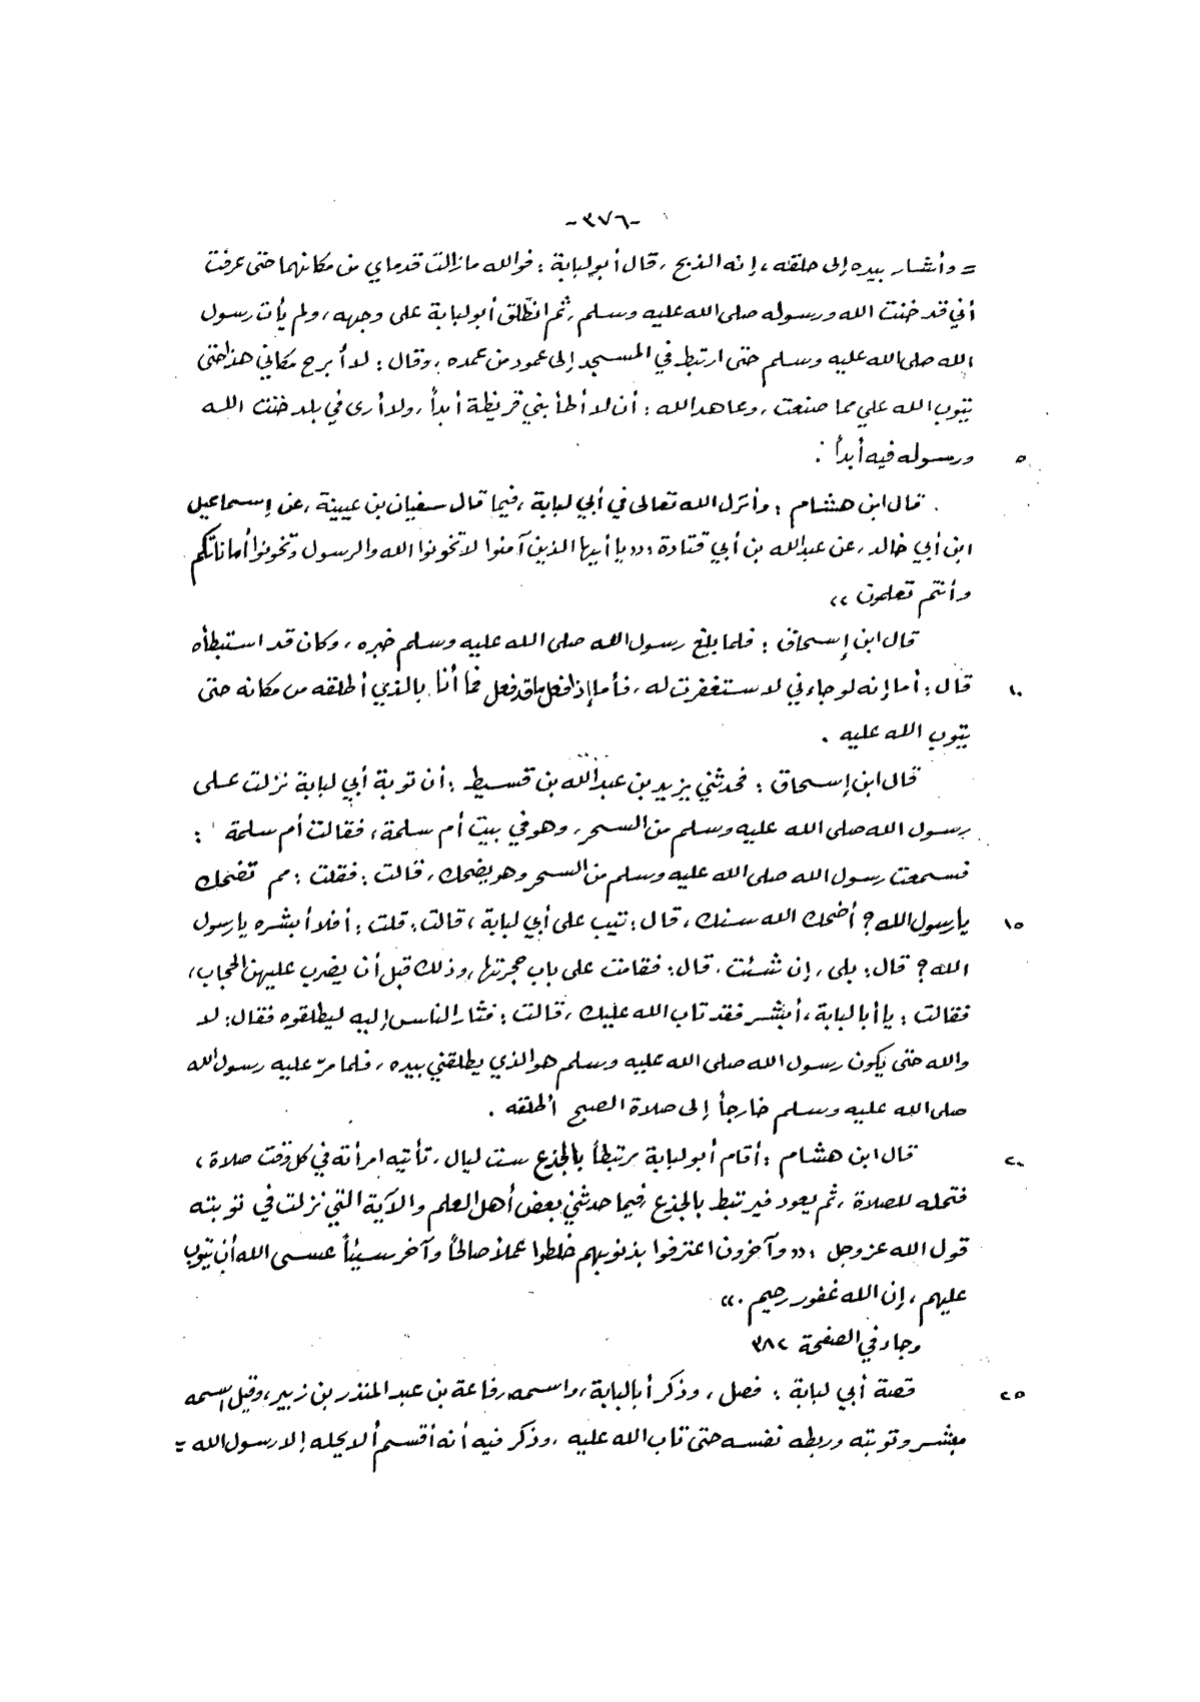 -٣٧٦-
= وأشار بيده إلى حلقه، إنه الذبح، قال أبو لبابة: فوالله ما زالت قدماي من مكانهما حتى عرفت
أني قد خنت الله ورسوله صلى الله عليه وسلم، ثم انطلق أبو لبابة على وجهه، ولم يأت رسول
الله صلى الله عليه وسلم حتى ارتبط في المسجد إلى عمود من عمده، وقال: لا أبرح مكاني هذا حتى
يتوب الله علي مما صنعت، وعاهد الله: أن لا أطأ بني قريظة أبداً، ولا أرى في بلد خنت الله
٥ ورسوله فيه أبداً.
قال ابن هشام: وأنزل الله تعالى في أبي لبابة، فيما قال سفيان بن عيينة، عن إسماعيل
ابن أبي خالد، عن عبدالله بن أبي قتادة: ((يا أيها الذين آمنوا لا تخونوا الله والرسول وتخونوا أماناتكم
وأنتم تعلمون ))
قال ابن إسحاق: فلما بلغ رسول الله صلى الله عليه وسلم خبره، وكان قد استبطأه
١٠ قال: أما إنه لو جاءني لاستغفرت له، فأما إذ فعل ما قد فعل فما أنا بالذي أطلقه من مكانه حتى
يتوب الله عليه.
قال ابن إسحاق: فحدثني يزيد بن عبدالله بن قسيط: أن توبة أبي لبابة نزلت على
رسول الله صلى الله عليه وسلم من السحر، وهو في بيت أم سلمة، فقالت أم سلمة:
فسمعت رسول الله صلى الله عليه وسلم من السحر وهو يضحك، قالت: فقلت: مم تضحك
١٥ يا رسول الله؟ أضحك الله سنك، قال: تيب على أبي لبابة، قالت: قلت: أفلا أبشره يا رسول
الله؟ قال: بلى، إن شئت، قال: فقامت على باب حجرتها، وذلك قبل أن يضرب عليهن الحجاب،
فقالت: يا أبا لبابة، أبشر فقد تاب الله عليك، قالت: فثار الناس إليه ليطلقوه فقال: لا
والله حتى يكون رسول الله صلى الله عليه وسلم هو الذي يطلقني بيده، فلما مرّ عليه رسول الله
صلى الله عليه وسلم خارجاً إلى صلاة الصبح أطلقه.
٢٠ قال ابن هشام: أقام أبو لبابة مرتبطاً بالجذع ست ليال، تأتيه امرأته في كل وقت صلاة،
فتحله للصلاة، ثم يعود فيرتبط بالجذع، فيما حدثني بعض أهل العلم والآية التي نزلت في توبته
قول الله عز وجل: ((وآخرون اعترفوا بذنوبهم خلطوا عملاً صالحاً وآخر سيئاً عسى الله أن يتوب
عليهم، إن الله غفور رحيم.))
وجاء في الصفحة ٣٨٢
٢٥ قصة أبي لبابة: فصل، وذكر أبا لبابة، واسمه رفاعة بن عبد المنذر بن زبير، وقيل اسمه
مبشر وتوبته وربطه نفسه حتى تاب الله عليه، وذكر فيه أنه أقسم ألا يحله إلا رسول الله =